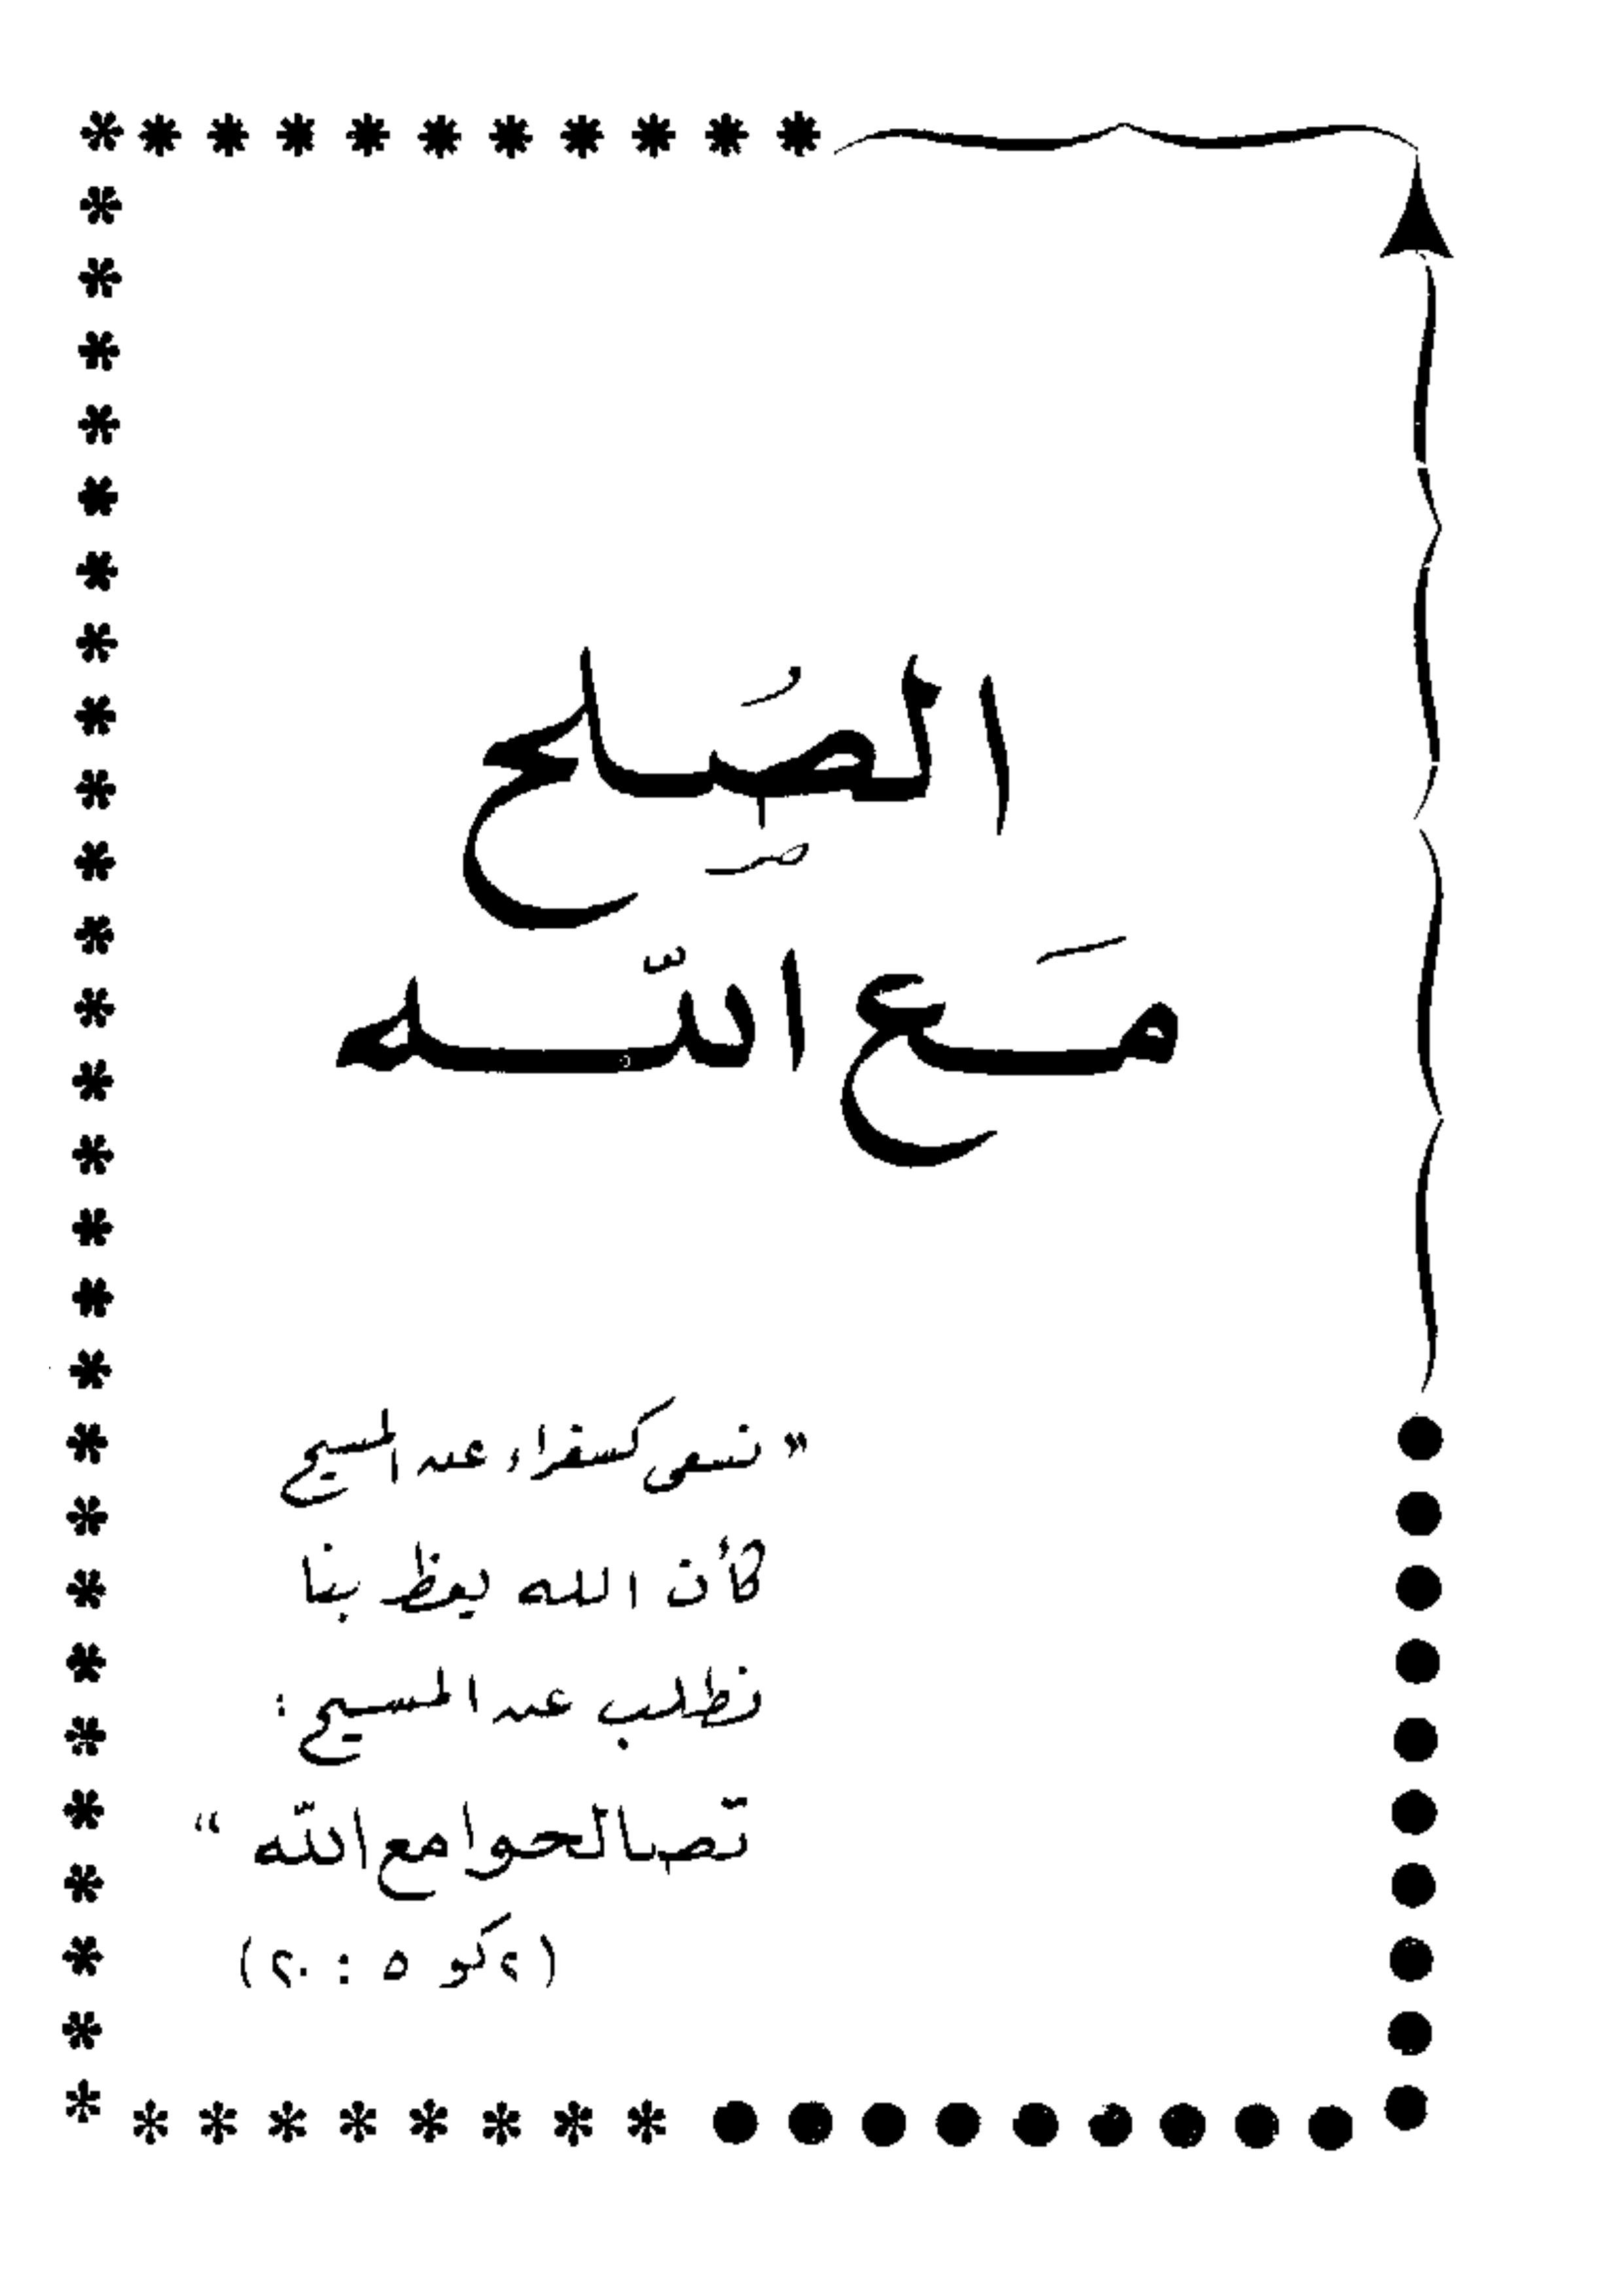 الصَلح
مَع اللّه
” نسعى كسفراء عن المسيح
كأن الله يعظ بنا
نطلب عن المسيح :
تصالحوا مع اللّه “
( ٢ كو ٥ : ٢٠ )